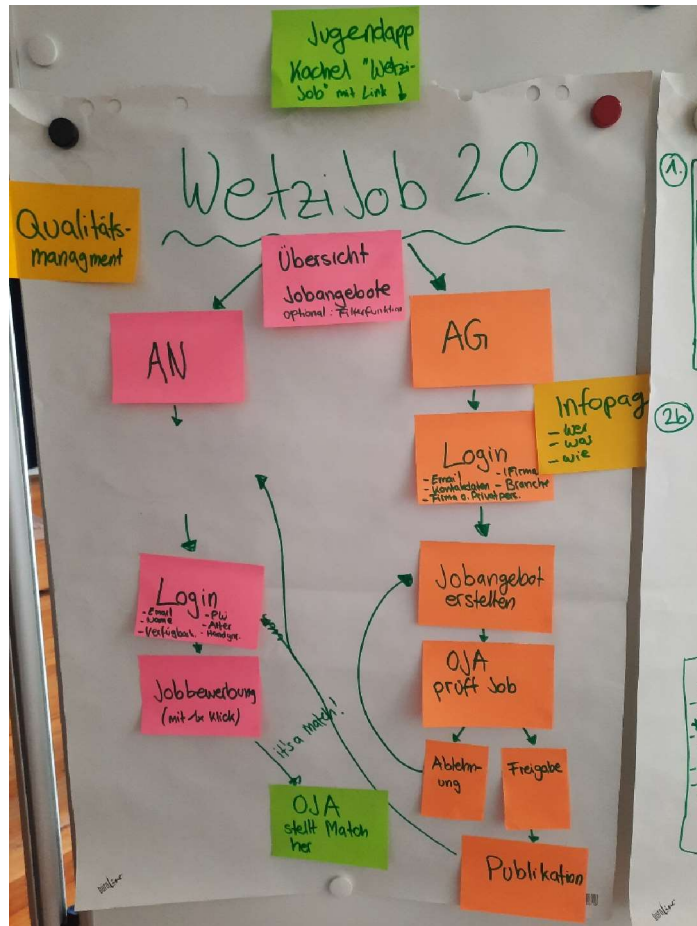 Jugendapp
Kachel "Wetzi-
Job" mit Link ↓
WetziJob 2.0
Qualitäts-
managment
Übersicht
Jobangebote
optional: Filterfunktion
AN
AG
Infopag
- wer
- was
- wie
Login
- Email
- Kontaktdaten
- Branche
- Firma o. Privatpers.
Login
- Email - PW
- Name - Alter
- Verfügbark. - Handynr.
Jobangebot
erstellen
OJA
prüft Job
Jobbewerbung
(mit 1x Klick)
it's a match!
Ablehn-
ung
Freigabe
OJA
stellt Match
her
Publikation
1.
2b